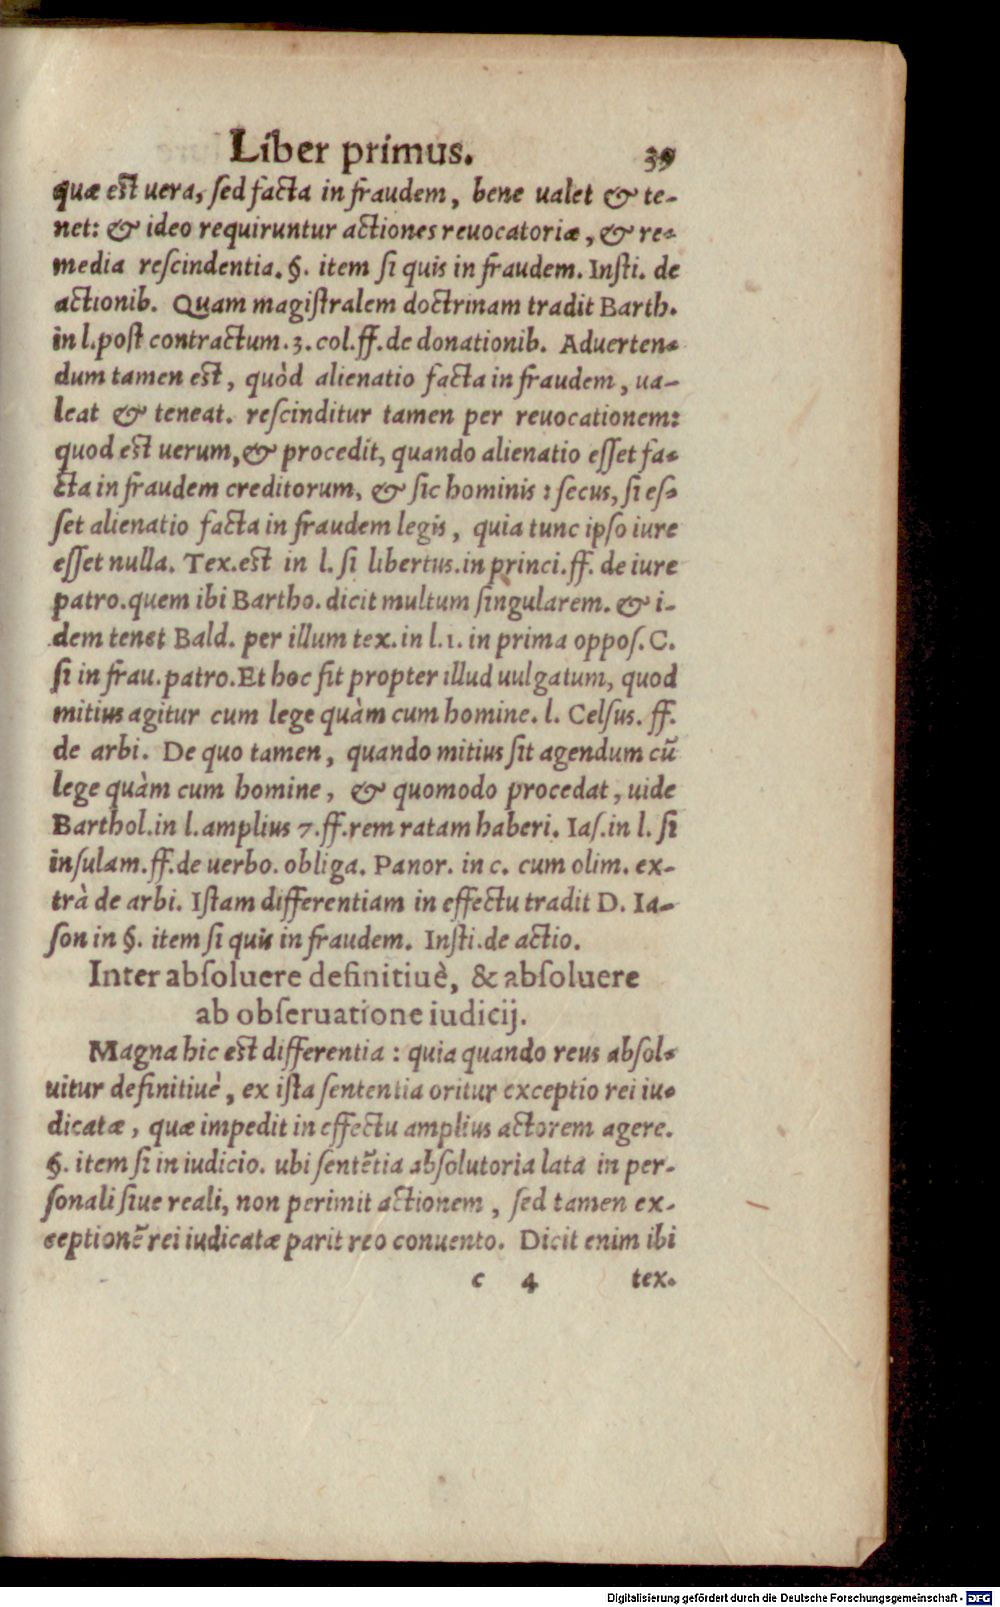 Liber primus. 39
quæ est uera, sed facta in fraudem, bene ualet & te-
net: & ideo requiruntur actiones reuocatoriæ, & re-
media rescindentia. §. item si quis in fraudem. Insti. de
actionib. Quam magistralem doctrinam tradit Barth.
in l. post contractum. 3. col. ff. de donationib. Aduerten-
dum tamen est, quòd alienatio facta in fraudem, ua-
leat & teneat. rescinditur tamen per reuocationem:
quod est uerum, & procedit, quando alienatio esset fa-
cta in fraudem creditorum, & sic hominis: secus, si es-
set alienatio facta in fraudem legis, quia tunc ipso iure
esset nulla. Tex. est in l. si libertus. in princi. ff. de iure
patro. quem ibi Bartho. dicit multum singularem. & i-
dem tenet Bald. per illum tex. in l. 1. in prima oppos. C.
si in frau. patro. Et hoc fit propter illud uulgatum, quod
mitius agitur cum lege quàm cum homine. l. Celsus. ff.
de arbi. De quo tamen, quando mitius sit agendum cũ
lege quàm cum homine, & quomodo procedat, uide
Barthol. in l. amplius 7. ff. rem ratam haberi. Ias. in l. si
insulam. ff. de uerbo. obliga. Panor. in c. cum olim. ex-
trà de arbi. Istam differentiam in effectu tradit D. Ia-
son in §. item si quis in fraudem. Insti. de actio.
Inter absoluere definitiuè, & absoluere
ab obseruatione iudicij.
Magna hic est differentia: quia quando reus absol-
uitur definitiuè, ex ista sententia oritur exceptio rei iu-
dicatæ, quæ impedit in effectu amplius actorem agere.
§. item si in iudicio. ubi sentẽtia absolutoria lata in per-
sonali siue reali, non perimit actionem, sed tamen ex-
ceptionẽ rei iudicatæ parit reo conuento. Dicit enim ibi
c 4 tex.
Digitalisierung gefördert durch die Deutsche Forschungsgemeinschaft - DFG